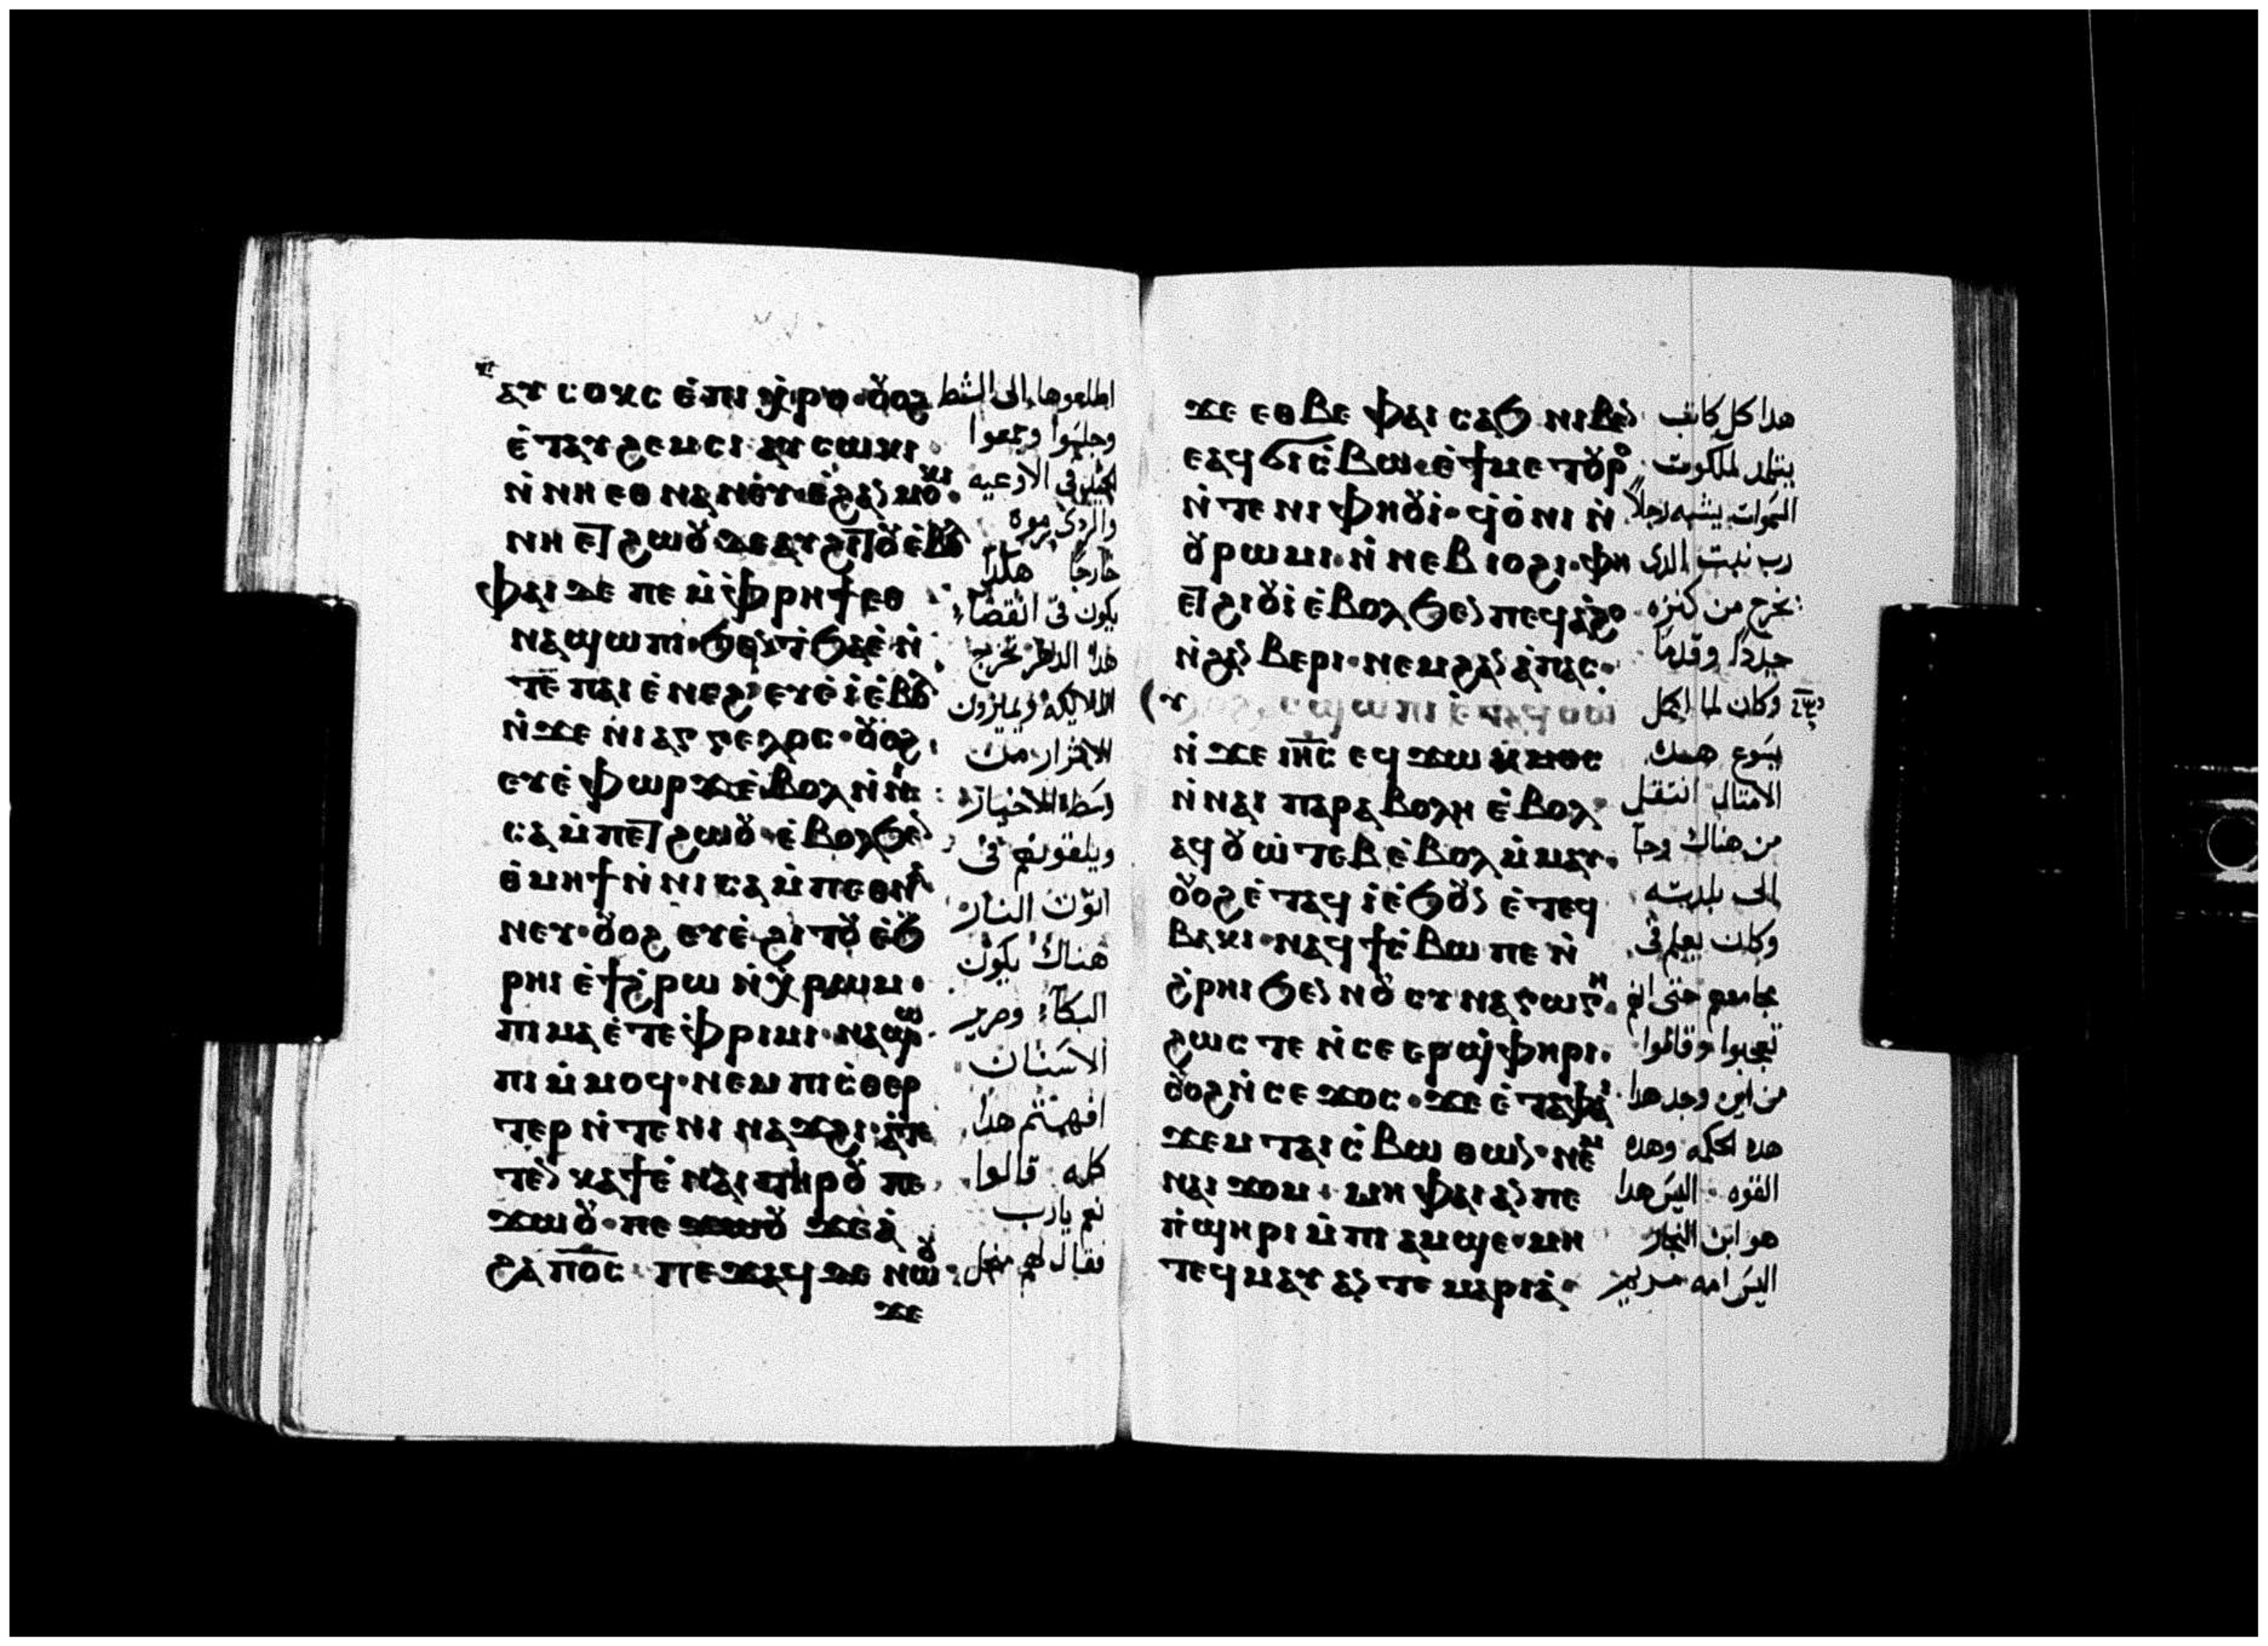 ⲁⲩⲥⲟⲕⲥ ⲉ̀ⲡⲓⲭ̀ⲣⲟ·ⲟ̆ⲟϩ
ⲉ̀ⲧⲁⲩϩⲉⲙⲥⲓ ⲁⲩⲥⲱⲕⲓ·
ⲛ̀ⲛⲏⲉⲑⲛⲁⲛⲉⲩ·ⲉ̀ϩⲁⲛⲙⲟⲕⲓ·
ⲛⲏ ⲉⲧϩⲱⲟ̆ ⲇⲉ ⲁⲩϩⲓⲧⲟ̆ ⲉ̀ⲃⲟⲗ
ⲫⲁⲓ ⲇⲉ ⲡⲉ ⲙ̀ⲫⲣⲏϯ ⲉⲑ
ⲛⲁϣⲱⲡⲓ·ϧⲉⲛ ϯϧⲁⲉ̀ ⲛ̀
ⲧⲉ ⲡⲁⲓⲉ̀ⲛⲉϩ· ⲉⲩⲉ̀ⲓ̀ ⲉ̀ⲃⲟⲗ
ⲛ̀ϫⲉ ⲛⲓⲁⲅⲅⲉⲗⲟⲥ·ⲟ̆ⲟϩ
ⲉⲩⲉ̀ⲫⲱⲣϫ ⲉ̀ⲃⲟⲗ ⲛ̀ⲛⲓ
ⲥⲁⲙ̀ⲡⲉⲧϩⲱⲟ̆·ⲉ̀ⲃⲟⲗ ϧⲉⲛ
ⲑ̀ⲙⲏϯ ⲛ̀ⲛⲓⲥⲁⲙ̀ⲡⲉⲑⲛⲁ
ⲛⲉⲩ·ⲟ̆ⲟϩ ⲉⲩⲉ̀ϩⲓⲧⲟ̆ ⲉ̀ϧ
ⲣⲏⲓ ⲉ̀ϯϩ̀ⲣⲱ ⲛ̀ⲭ̀ⲣⲱⲙ·
ⲡⲓⲙⲁ ⲉ̀ⲧⲉ ⲫ̀ⲣⲓⲙⲓ·ⲛⲁϣⲱ
ⲡⲓ ⲙ̀ⲙⲟϥ·ⲛⲉⲙ ⲡⲓⲥ̀ⲑⲉⲣ
ⲧⲉⲣ ⲛ̀ⲧⲉ ⲛⲓⲛⲁϫϩⲓ·ⲁ̀ⲣⲉ
ⲧⲉⲛⲕⲁϯ ⲉ̀ⲛⲁⲓ ⲧⲏⲣⲟ̆ ⲡⲉ
ϫⲱⲟ̆·ⲡⲉϫⲱⲟ̆ ϫⲉ ⲁ̀
ϩⲁ ⲡⲟⲥ· ⲡⲉϫⲁϥ ⲇⲉ ⲛⲱⲟ̆·
ϫⲉ
اطلعوها الى الشط
وجلسوا وجمعوا
الجيد فى الاوعيه
والردى رموه
خارجا هكذا
يكون فى انقضاء
هذا الدهر تخرج
الملايكه ويميزون
الاشرار من
وسط الاخيار
ويلقونهم فى
اتون النار
هناك يكون
البكاء وصرير
الاسنان
افهمتم هذا
كله قالوا
نعم يارب
فقال لهم من اجل
ϫⲉ ⲉⲑⲃⲉ ⲫⲁⲓ ⲥⲁϧ ⲛⲓⲃⲉⲛ
ⲉⲁϥϭⲓⲥ̀ⲃⲱ·ⲉ̀ϯⲙⲉⲧⲟ̆ⲣⲟ
ⲛ̀ⲧⲉ ⲛⲓⲫⲏⲟ̆ⲓ̀·ϥ̀ⲟ̀ⲛⲓ ⲛ̀
ⲟ̆ⲣⲱⲙⲓ·ⲛ̀ⲛⲉⲃⲓⲟϩⲓ·ⲫⲏ
ⲉⲧϩⲓⲟ̆ⲓ̀ ⲉ̀ⲃⲟⲗ ϧⲉⲛ ⲡⲉϥⲁ̀ϩⲟ
ⲛ̀ϩⲁⲛⲃⲉⲣⲓ·ⲛⲉⲙ ϩⲁⲛⲁ̀ⲡⲁⲥ·
ⲥϣⲱⲡⲓ ⲉ̀ⲧⲁϥⲟⲩⲱ
ⲛ̀ϫⲉ ⲓⲏⲥ ⲉϥϫⲱ ⲙ̀ⲙⲟⲥ
ⲛ̀ⲛⲁⲓ ⲡⲁⲣⲁⲃⲟⲗⲏ ⲉ̀ⲃⲟⲗ·
ⲁϥⲟ̆ⲱ̀ⲧⲉⲃ ⲉ̀ⲃⲟⲗ ⲙ̀ⲙⲁⲩ·
ⲟ̆ⲟϩ ⲉ̀ⲧⲁϥⲓ̀ ⲉ̀ϧⲟ̆ⲛ ⲉ̀ⲧⲉϥ
ⲃⲁⲕⲓ·ⲛⲁϥϯⲥ̀ⲃⲱ ⲡⲉ ⲛ̀
ϩ̀ⲣⲏⲓ ϧⲉⲛ ⲛⲟ̆ⲥⲩⲛⲁⲅⲱⲅⲏ·
ϩⲱⲥⲧⲉ ⲛ̀ⲥⲉⲉⲣϣ̀ⲫⲏⲣⲓ·
ⲟ̆ⲟϩ ⲛ̀ⲥⲉϫⲟⲥ·ϫⲉ ⲉ̀ⲧⲁⲫⲁⲓ
ϫⲉⲙ ⲧⲁⲓⲥ̀ⲃⲱ ⲑⲱⲛ·ⲛⲉⲙ
ⲛⲁⲓϫⲟⲙ·ⲙⲏ ⲫⲁⲓ ⲁⲛ ⲡⲉ
ⲡ̀ϣⲏⲣⲓ ⲙ̀ⲡⲓⲁⲙϣⲉ·ⲙⲏ
ⲧⲉϥⲙⲁⲩ ⲁⲛ ⲧⲉ ⲙⲁⲣⲓⲁ̀·
هذا كل كاتب
يتتلمذ لملكوت
السموات يشبه رجلا
رب بيت الذى
يخرج من كنزه
جددا وقدما
وكان لما اكمل
يسوع هذه
الامثال انتقل
من هناك وجا
الى بلدته
وكان يعلم فى
مجامعهم حتى انهم
تعجبوا وقالوا
من اين وجد هذا
هذه الحكمه وهذه
القوه اليس هذا
هو ابن النجار
اليس امه مريم